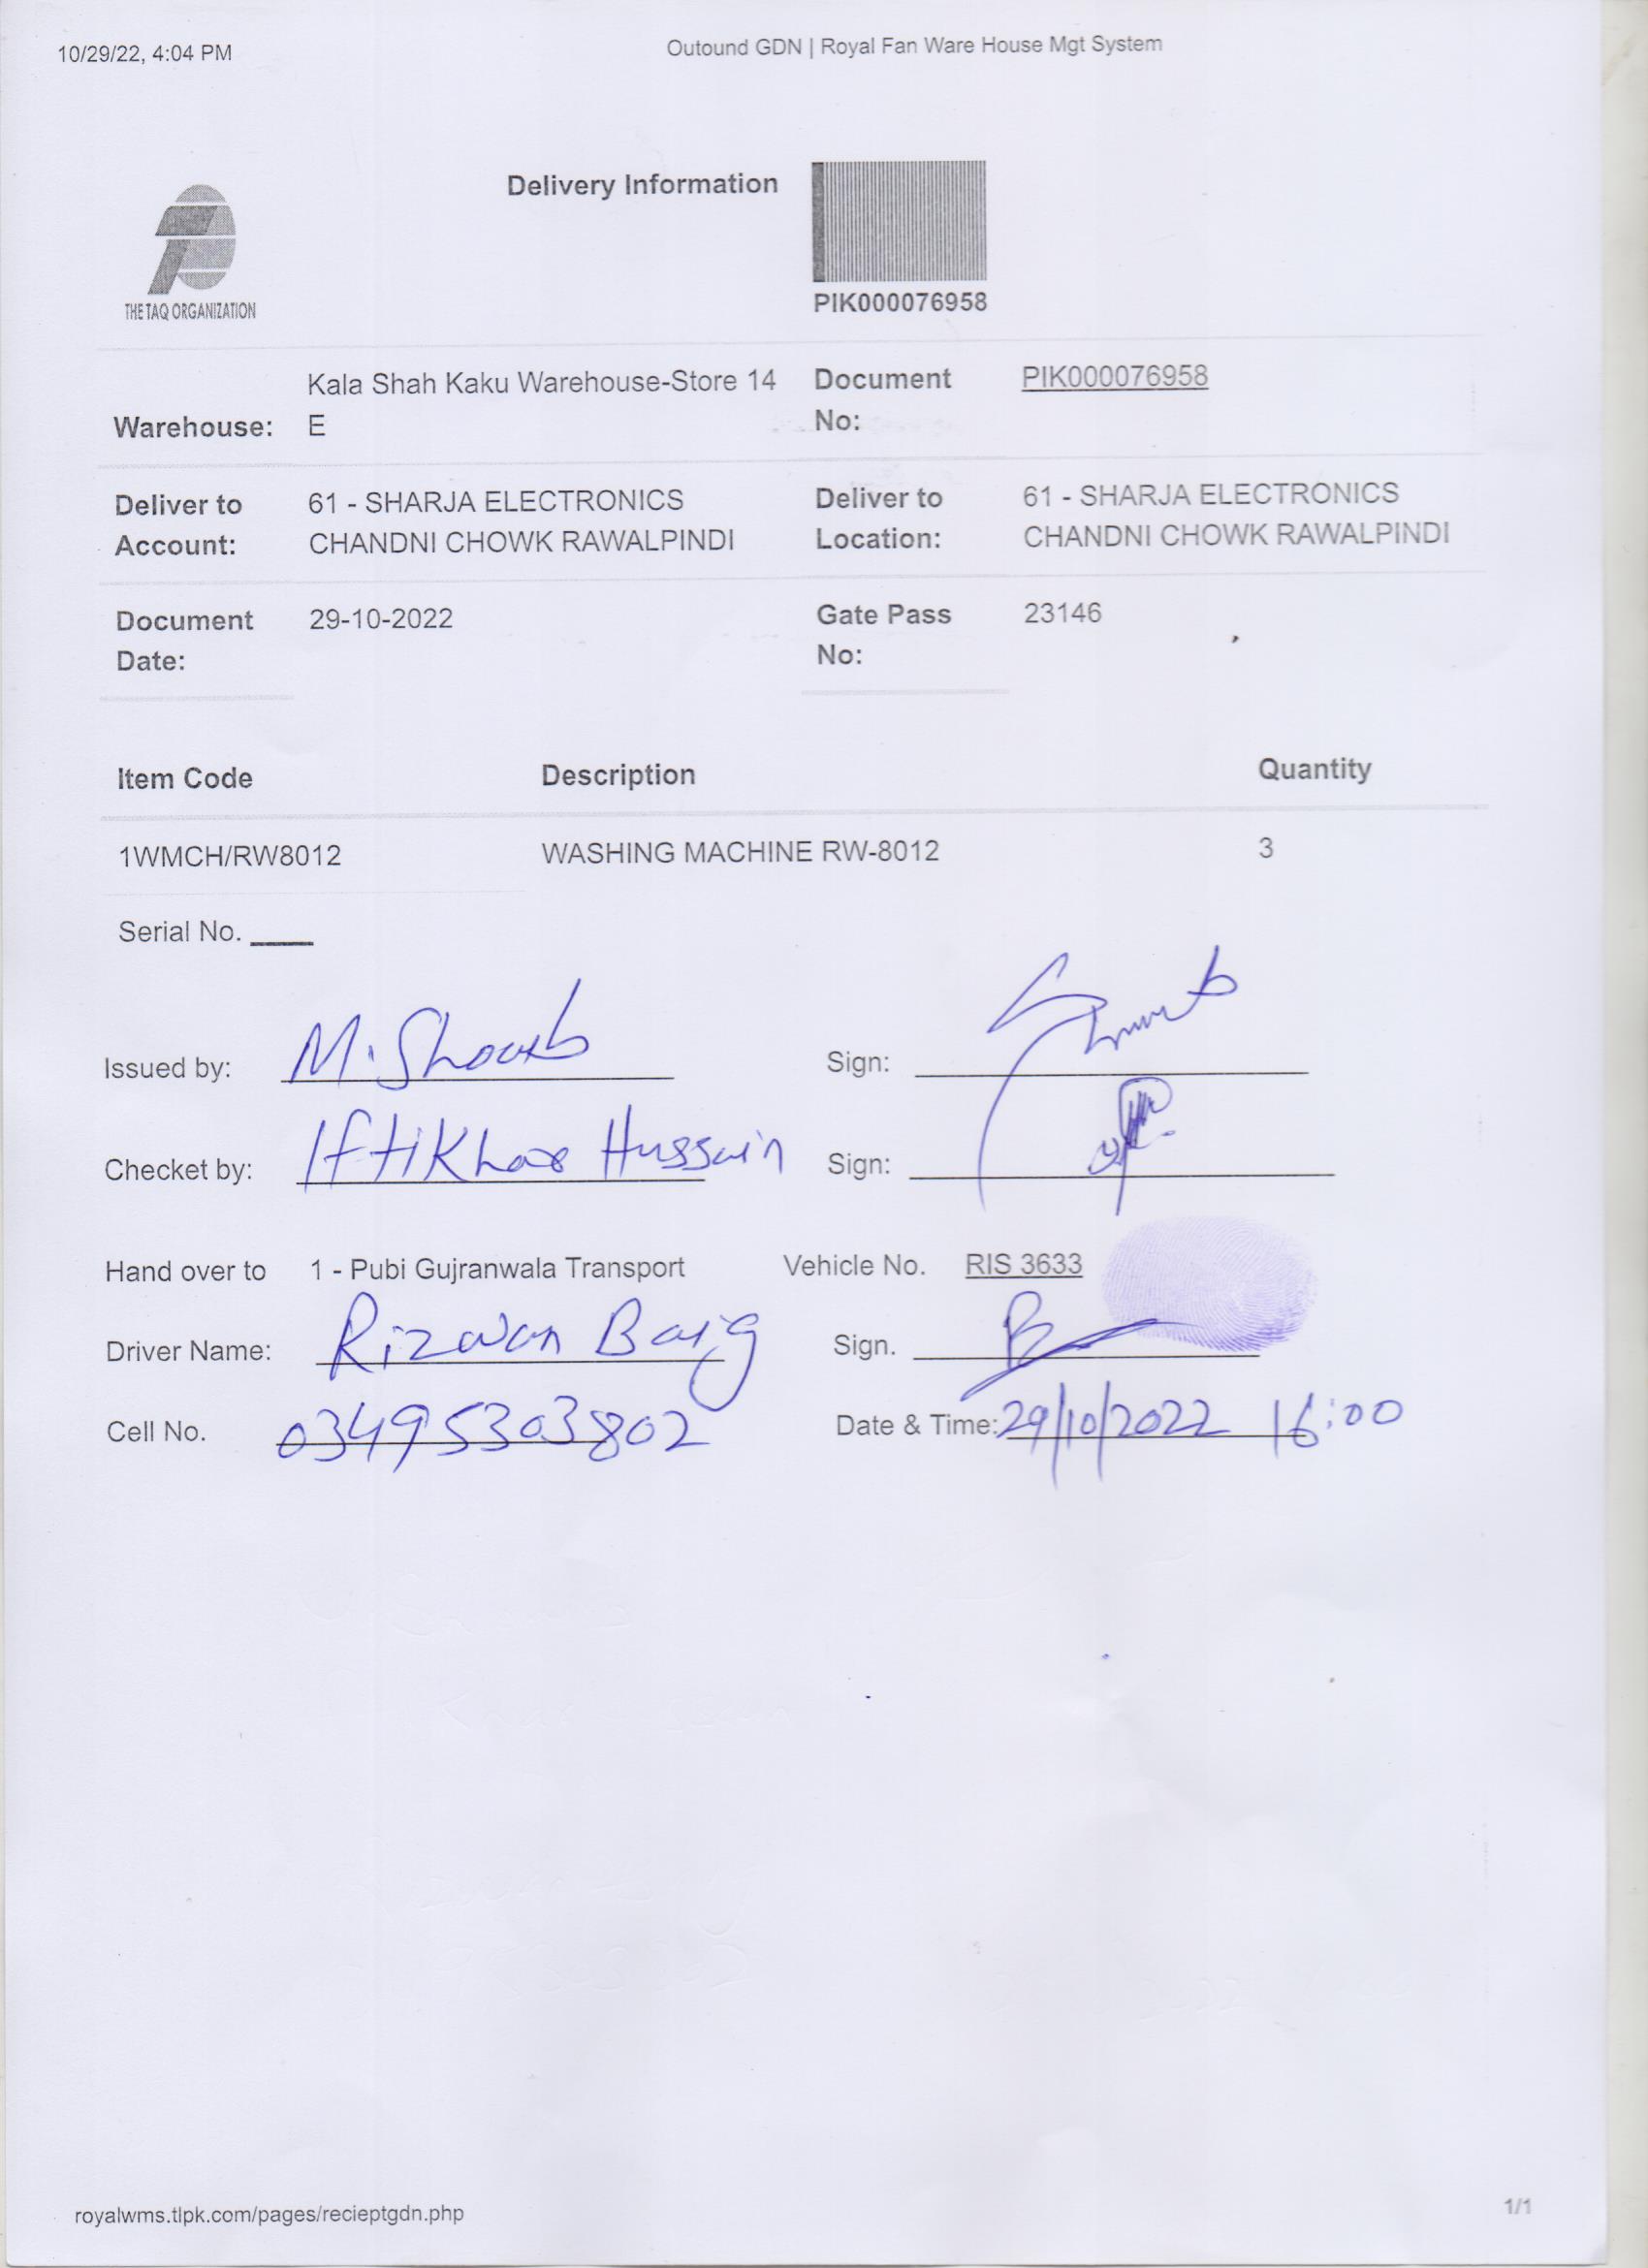 10/29/22, 4:04 PM Outound GDN | Royal Fan Ware House Mgt System
Delivery Information
THE TAQ ORGANIZATION
PIK000076958
Warehouse: Kala Shah Kaku Warehouse-Store 14 E Document No: PIK000076958
Deliver to Account: 61 - SHARJA ELECTRONICS CHANDNI CHOWK RAWALPINDI Deliver to Location: 61 - SHARJA ELECTRONICS CHANDNI CHOWK RAWALPINDI
Document Date: 29-10-2022 Gate Pass No: 23146
Item Code Description Quantity
1WMCH/RW8012 WASHING MACHINE RW-8012 3
Serial No. ____
Issued by: M. Shoaib Sign:
Checket by: Iftikhar Hussain Sign:
Hand over to 1 - Pubi Gujranwala Transport Vehicle No. RIS 3633
Driver Name: Rizwan Baig Sign.
Cell No. 03495303802 Date & Time: 29/10/2022 16:00
royalwms.tlpk.com/pages/recieptgdn.php 1/1